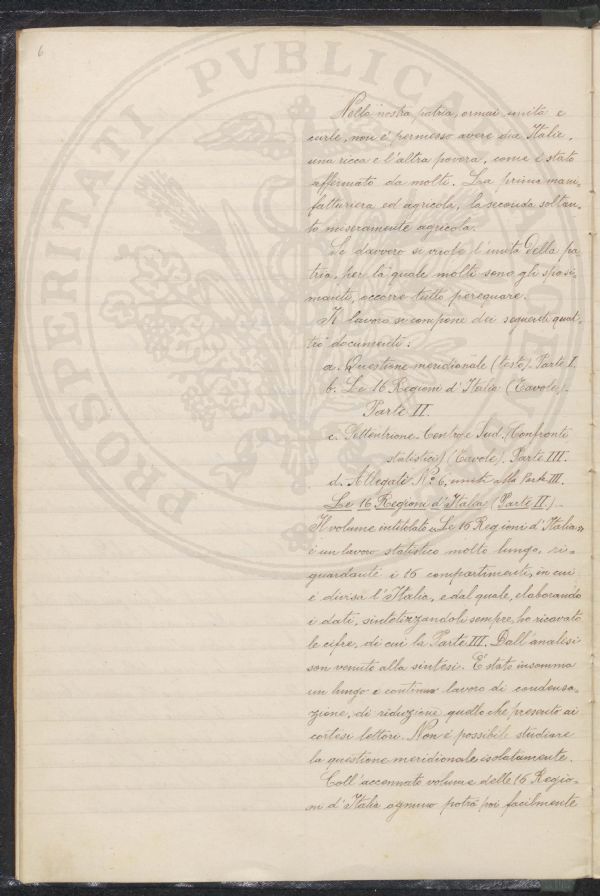 6
PROSPERITATI PVBLICAE
Nella nostra patria, ormai unita e
forte, non è permesso avere due Italie,
una ricca e l'altra povera, come è stato
affermato da molti. La prima mani-
fatturiera ed agricola, la seconda soltan-
to miseramente agricola.
Se davvero si vuole l'unità della pa-
tria, per la quale molti sono gli spasi-
manti, occorre tutto perequare.
Il lavoro si compone dei seguenti quat-
tro documenti:
a. Questione meridionale (testo). Parte I.
b. Le 16 Regioni d'Italia (Tavole).
Parte II.
c. Settentrione Centro e Sud. (Confronti
statistici) (Tavole). Parte III.
d. Allegati No 6, uniti alla Parte III.
Le 16 Regioni d'Italia (Parte II.)
Il volume intitolato "Le 16 Regioni d'Italia"
è un lavoro statistico molto lungo, ri-
guardante i 16 compartimenti, in cui
è divisa l'Italia, e dal quale, elaborando
i dati, sintetizzandoli sempre, ho ricavato
le cifre, di cui la Parte III. Dall'analisi
son venuto alla sintesi. È stato insomma
un lungo e continuo lavoro di condensa-
zione, di riduzione quello che presento ai
cortesi lettori. Non è possibile studiare
la questione meridionale isolatamente.
Coll'accennato volume delle 16 Regio-
ni d'Italia ognuno potrà poi facilmente